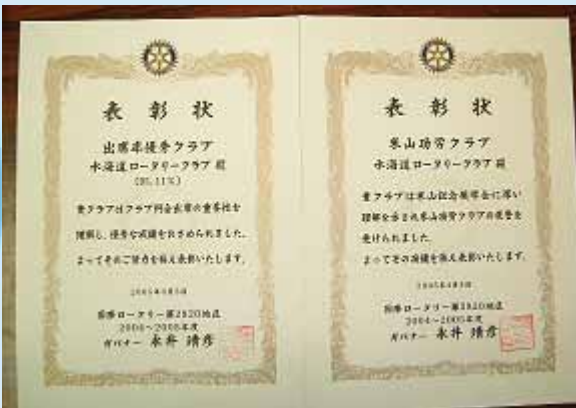 表彰状
出席率優秀クラブ
水海道ロータリークラブ 殿
(95.11%)
貴クラブはクラブ例会出席の重要性を
理解し、優秀な成績をおさめられました。
よってそのご努力を称え表彰いたします。
国際ロータリー第2820地区
2004～2005年度
ガバナー 永井 靖彦
表彰状
米山功労クラブ
水海道ロータリークラブ 殿
貴クラブは米山記念奨学会に厚い
理解を示され米山功労クラブの栄誉を
受けられました。
よってその功績を称え表彰いたします。
国際ロータリー第2820地区
2004～2005年度
ガバナー 永井 靖彦